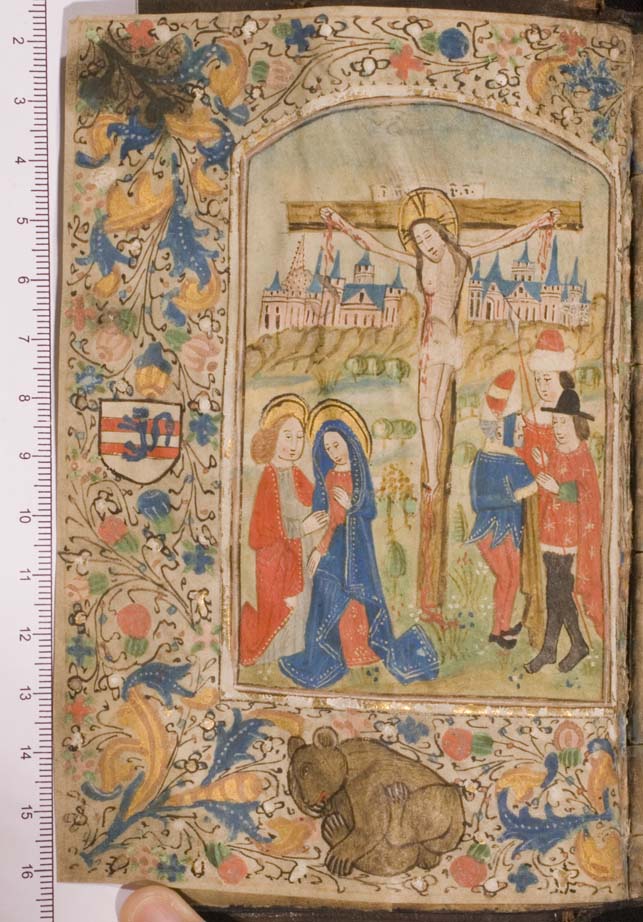 2
3
4
5
6
7
8
9
10
11
12
13
14
15
16